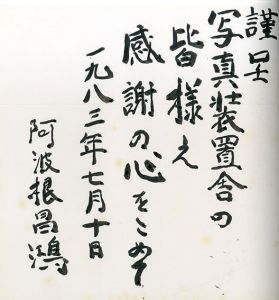 謹呈
写真装置舎の
皆様え
感謝の心をこめて
一九八三年七月十日
阿波根昌鴻